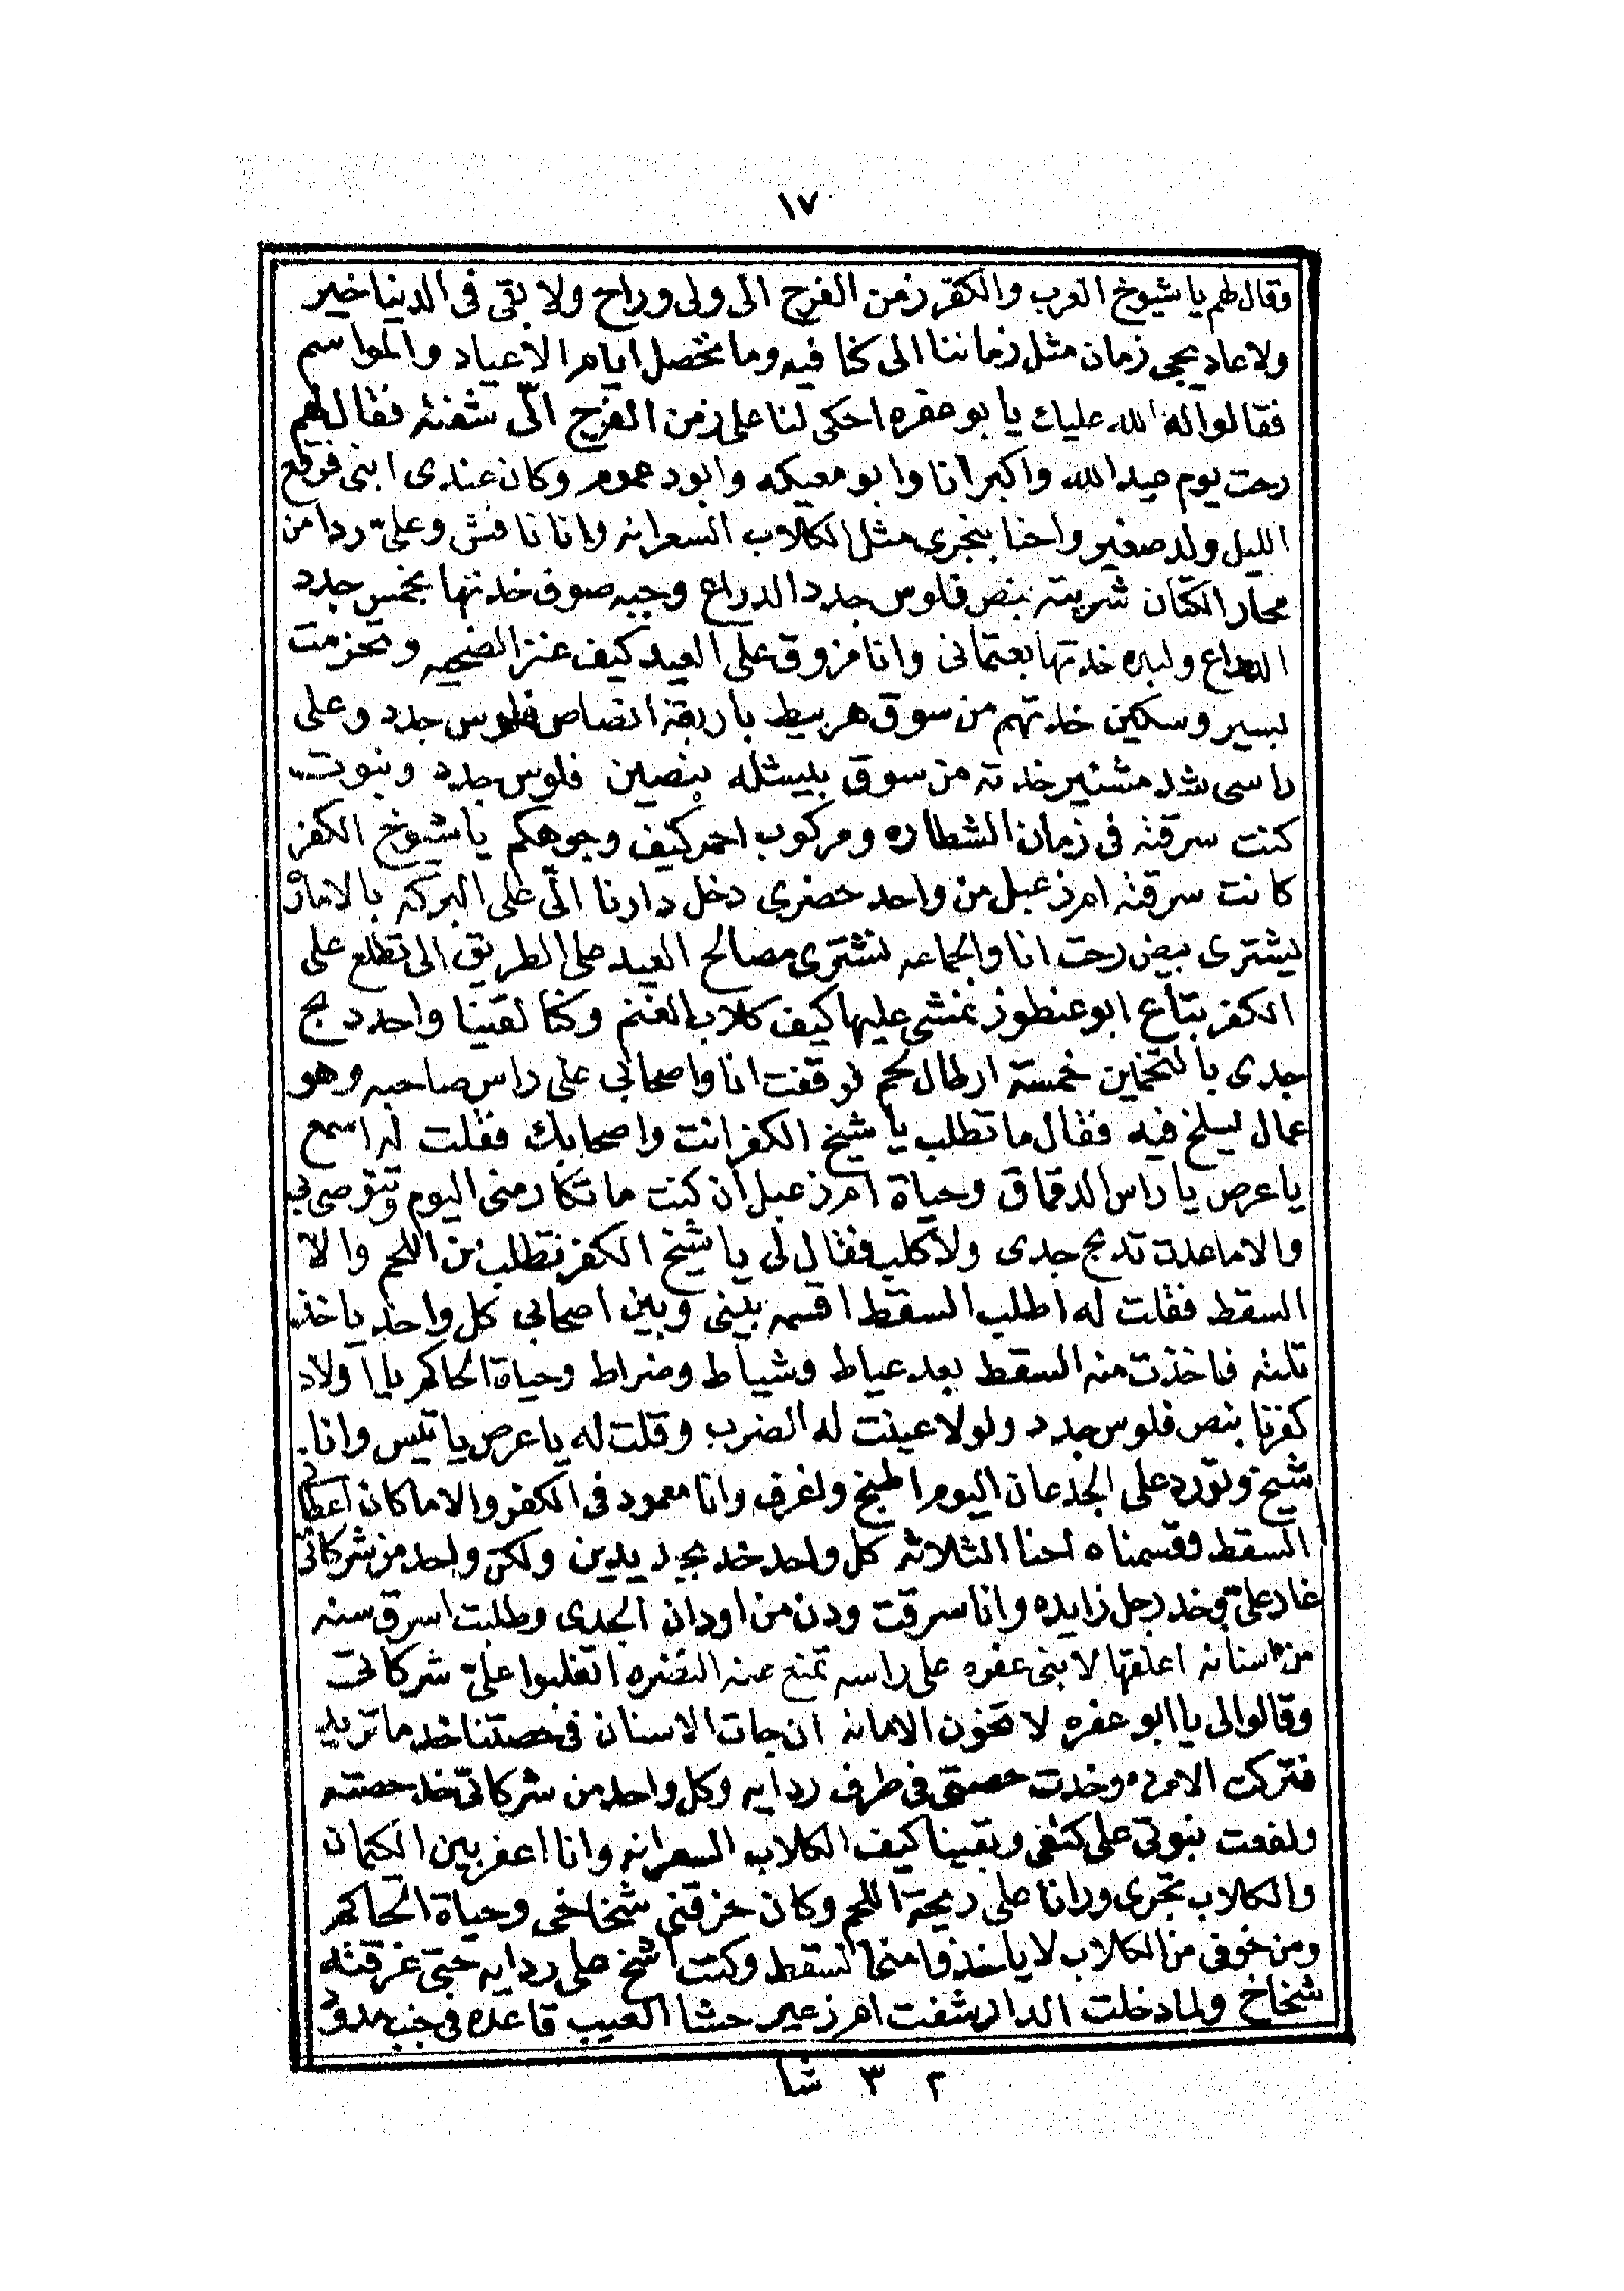 ١٧
فقال لهم يا شيوخ العرب والكفر زمن الفرح الى ولى وراح ولا بقى فى الدنيا خير
ولا عاد يجى زمان مثل زماننا الى كنا فيه وما تحصل ايام الاعياد والمواسم
فقالوا له الله عليك يا بو عفره احكى لنا على زمن الفرح الّى شفته فقال لهم
رحت يوم عيد الله واكبر انا وابو معيكه وابو دعموم وكان عندى ابنى فرقع
الليل ولد صغير واحنا بنجرى مثل الكلاب السعرانه وانا نافش وعلىّ ردا من
محار الكتان شريته بنص فلوس جدد الدراع وجبه صوف خدتها بخمس جدد
الدراع ولبده خدتها بعتمانى وانا مزوق على العيد كيف عنز الضحيه وتحزمت
بسير وسكين خدتهم من سوق هربيط باربعة انصاص فلوس جدد وعلى
راسى شد مشنير خدته من سوق بلبيس بنصين فلوس جدد ونبوت
كنت سرقته فى زمان الشطاره ومركوب احمر كيف وجوهكم يا شيوخ الكفر
كانت سرقته ام زعبل من واحد حضرى دخل دارنا الّى على البركه بالاماره
يشترى بيض رحت انا والجماعه نشترى مصالح العيد على الطريق الى تطلع على
الكفر بتاع ابو عنطوز نمشى عليها كيف كلاب الغنم وكنا لقينا واحد دبح
جدى بالتخمين خمسة ارطال لحم فوقفت انا واصحابى على راس صاحبه وهو
عمال يسلخ فيه فقال ما تطلب يا شيخ الكفر انت واصحابك فقلت له اسمع
يا عرص يا راس الدقماق وحياة ام زعبل ان كنت ما تكارمنى اليوم وتتوصى بى
والا ما عدت تدبح جدى ولا كلب فقال لى يا شيخ الكفر تطلب من اللحم والا
السقط فقلت له اطلب السقط اقسمه بينى وبين اصحابى كل واحد ياخذ
تلته فاخذت منه السقط بعد عياط وشياط وضراط وحياة الحاكم يا اولاد
كفرنا بنص فلوس جدد ولولا عينت له الضرب وقلت له يا عرص يا تيس وانا
شيخ وتورد على الجدعان اليوم اطبخ ولغرف وانا معمود فى الكفر والا ما كان اعطانى
السقط وقسمناه احنا الثلاثه كل واحد خد بجديدين ولكن واحد من شركاتى
غار علىّ وخد رجل زايده وانا سرقت ودن من اودان الجدى وطلبت اسرق سنه
من اسنانه اعلقها لابنى عفره على راسه تمنع عنه النضره اتغلبوا علىّ شركاتى
وقالوا لى يا ابو عفره لا تخون الامانه ان جات الاسنان فى حصتنا خد ما تريد
فتركت الامر وخدت حصتى فى طرف ردايه وكل واحد من شركاتى خد حصته
ولفعت نبوتى على كتفى وبقينا كيف الكلاب السعرانه وانا اعفر بين الكتمان
والكلاب تجرى ورانا على ريحة اللحم وكان حزقنى شخاخى وحياة الحاكم
ومن خوفى من الكلاب لا ياخذوا منى السقط وكنت اشخ على ردايه حتى غرقته
شخاخ ولما دخلت الدار شفت ام زعبر حشا العيب قاعده فى جنب مدود
٢ ٣ شا